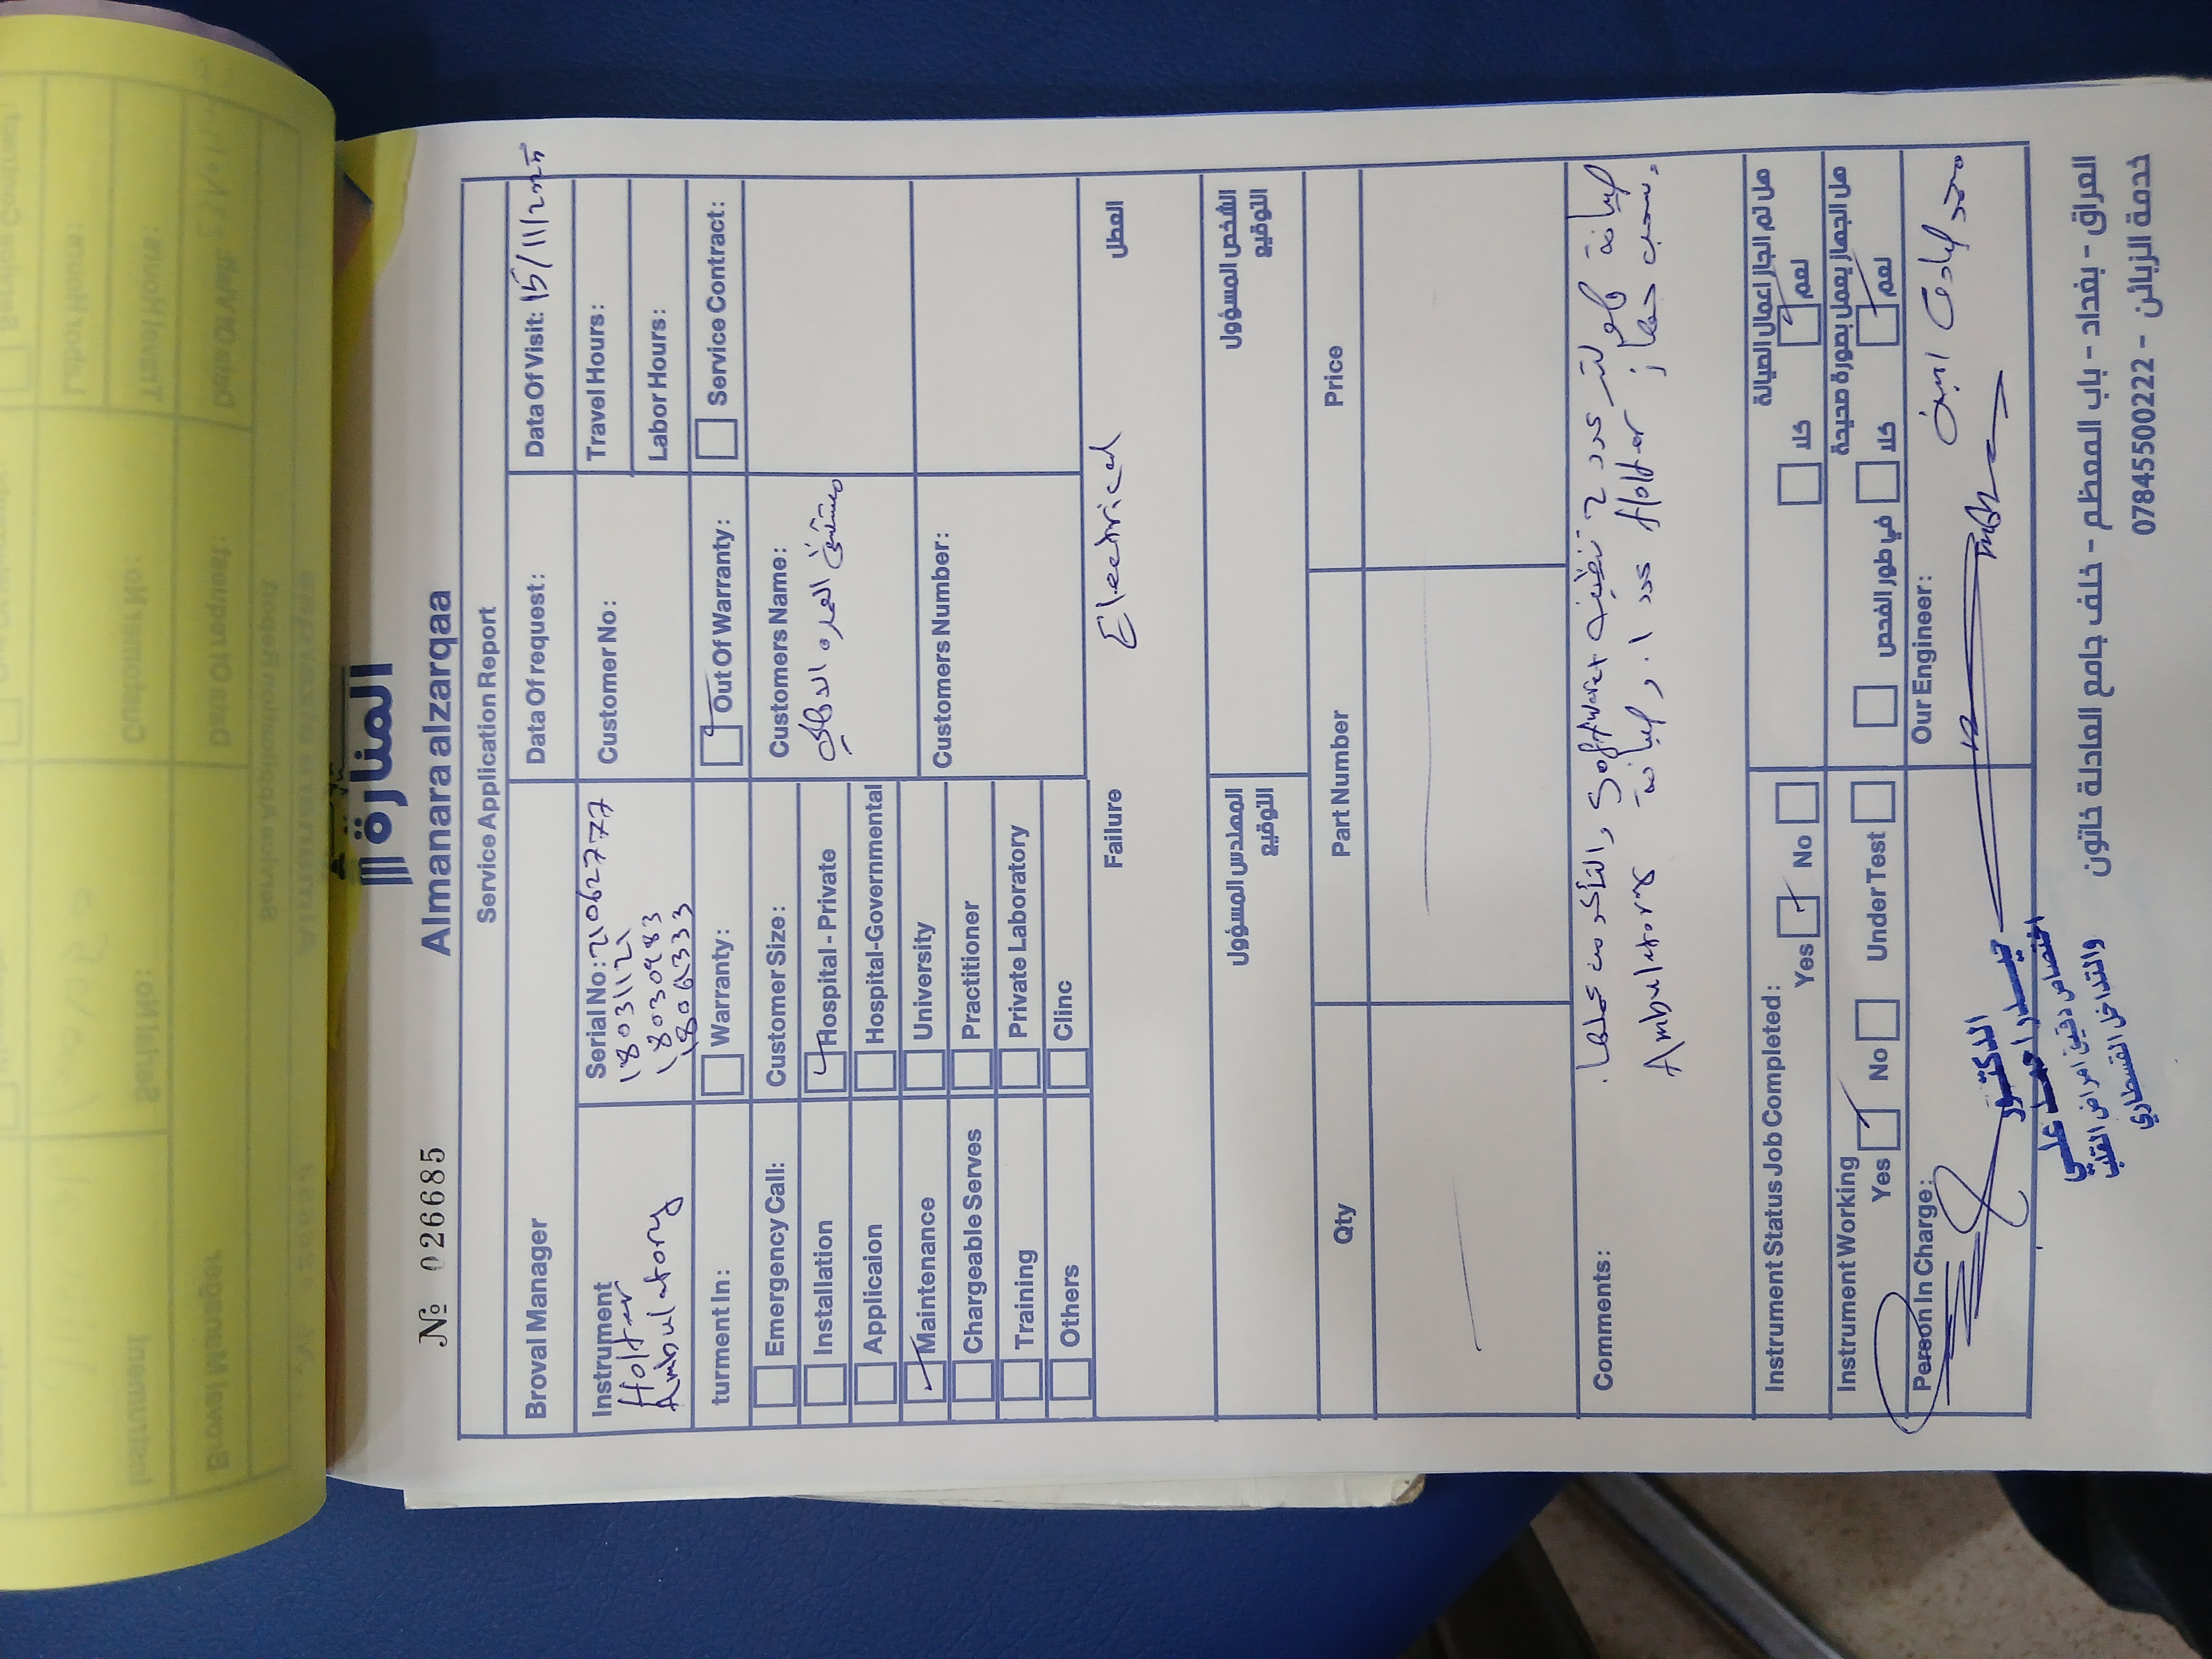 المنارة
Almanara alzarqaa
№ 026685
Service Application Report
Broval Manager
Data Of request:
Data Of Visit: 15/11/2025
Instrument
Holter
Ambulatory
Serial No: 21062777
18031121
18030983
Customer No:
Travel Hours:
Labor Hours:
turment In:
Warranty:
Out Of Warranty:
Service Contract:
Emergency Call:
Installation
Application
Maintenance
Chargeable Serves
Training
Others
Customer Size:
Hospital - Private
Hospital-Governmental
University
Practitioner
Private Laboratory
Clinc
Customers Name:
مستشفى
Customers Number:
Failure
Electrical
العطل
المهندس المسؤول
التوقيع
الشخص المسؤول
التوقيع
Qty
Part Number
Price
Comments:
صيانة عدد 2 تنصيب Software والتأكد من عملها.
Ambulatory عدد 1. وصيانة Holter وسحب جهاز
Instrument Status Job Completed:
Yes
No
هل تم انجاز اعمال الصيانة
كلا
نعم
Instrument Working
Yes
No
Under Test
هل الجهاز يعمل بصورة صحيحة
في طور الفحص
كلا
نعم
Person In Charge:
Our Engineer:
محمد امين
الدكتور
حيدر احمد علي
اختصاص دقيق امراض القلب
والتداخل القسطاري
العراق - بغداد - باب المعظم - خلف جامع العادلة خاتون
خدمة الزبائن - 07845500222